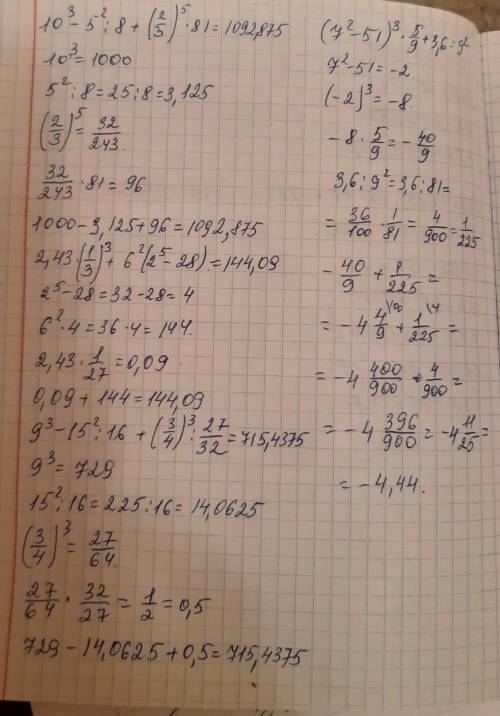 10³ - 5² : 8 + (2/3)⁵ · 81 = 1092,875
10³ = 1000
5² : 8 = 25 : 8 = 3,125
(2/3)⁵ = 32/243.
32/243 · 81 = 96
1000 - 3,125 + 96 = 1092,875
2,43 · (1/3)³ + 6² (2⁵ - 28) = 144,09
2⁵ - 28 = 32 - 28 = 4
6² · 4 = 36 · 4 = 144.
2,43 · 1/27 = 0,09.
0,09 + 144 = 144,09
9³ - 15² : 16 + (3/4)³ : 27/32 = 715,4375
9³ = 729
15² : 16 = 225 : 16 = 14,0625
(3/4)³ = 27/64.
27/64 · 32/27 = 1/2 = 0,5
729 - 14,0625 + 0,5 = 715,4375
(7² - 51)³ · 5/9 + 3,6 : 9²
7² - 51 = -2
(-2)³ = -8.
-8 · 5/9 = -40/9
3,6 : 9² = 3,6 : 81 =
= 36/100 · 1/81 = 4/900 = 1/225
-40/9 + 1/225 =
= -4 4/9 \100 + 1/225 \4 =
= -4 400/900 + 4/900 =
= -4 396/900 = -4 11/25 =
= -4,44.